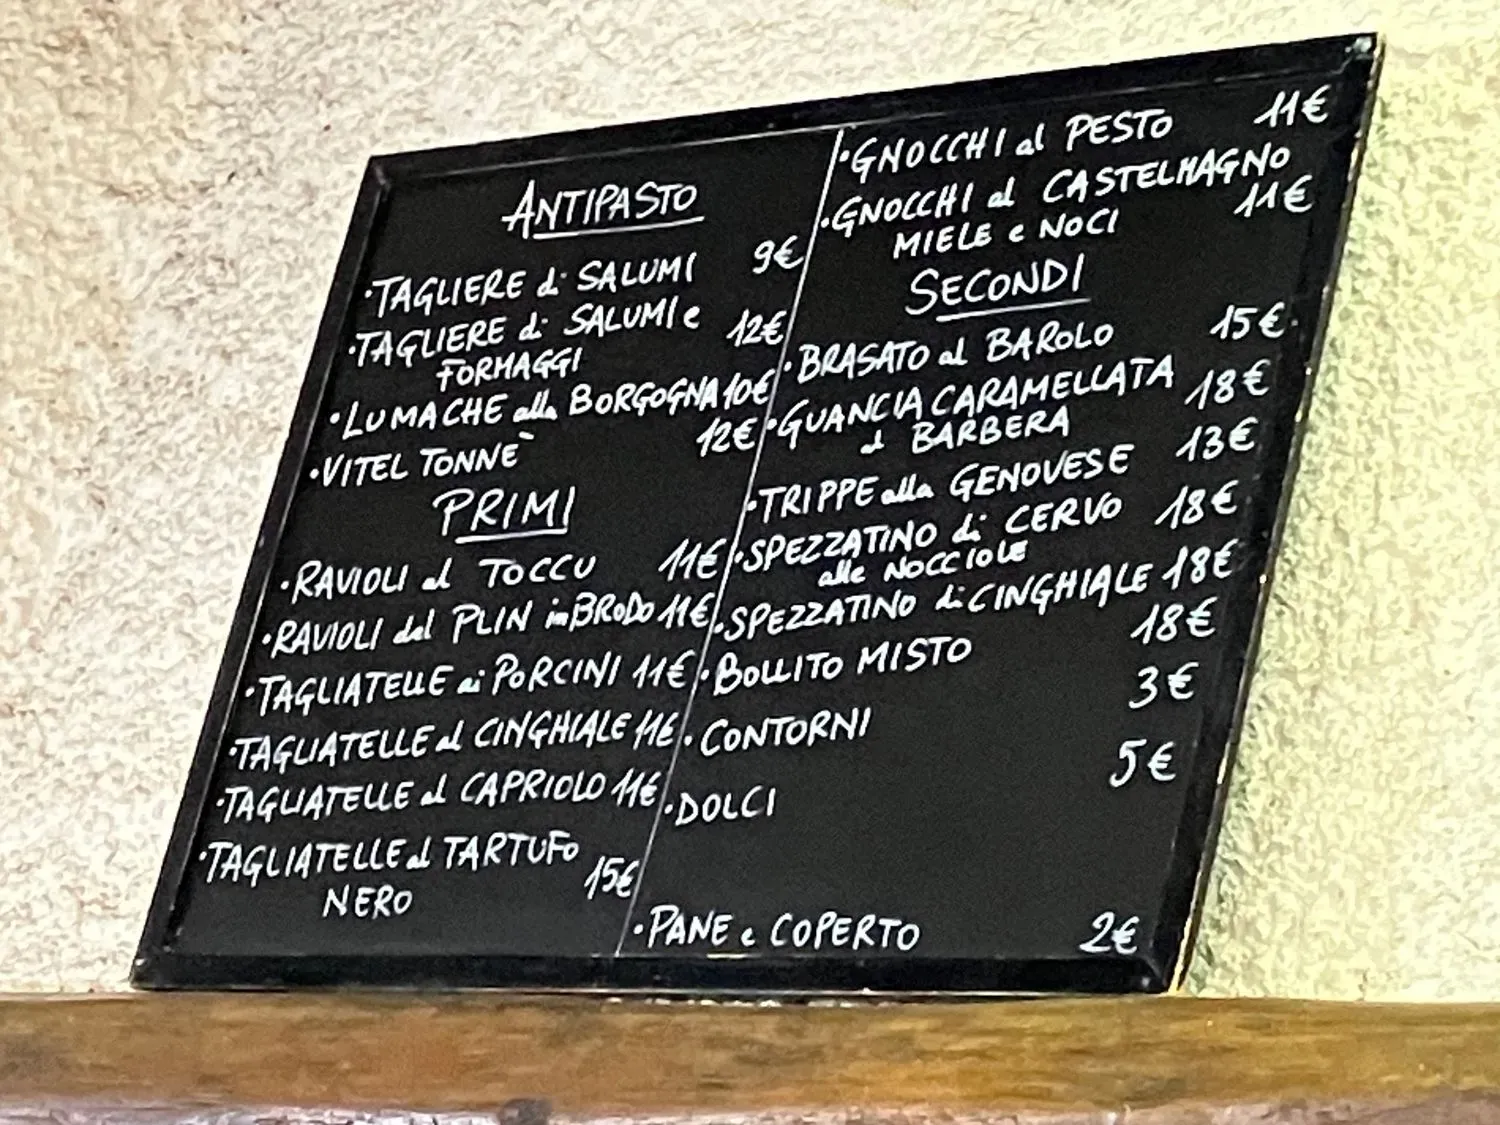 ANTIPASTO
·TAGLIERE di SALUMI 9€
·TAGLIERE di SALUMI e 12€
FORMAGGI
·LUMACHE alla BORGOGNA 10€
·VITEL TONNÈ 12€
PRIMI
·RAVIOLI al TOCCU 11€
·RAVIOLI del PLIN in BRODO 11€
·TAGLIATELLE ai PORCINI 11€
·TAGLIATELLE al CINGHIALE 11€
·TAGLIATELLE al CAPRIOLO 11€
·TAGLIATELLE al TARTUFO
NERO 15€
·GNOCCHI al PESTO 11€
·GNOCCHI al CASTELMAGNO
MIELE e NOCI 11€
SECONDI
·BRASATO al BAROLO 15€
·GUANCIA CARAMELLATA 18€
al BARBERA
·TRIPPE alla GENOVESE 13€
·SPEZZATINO di CERVO 18€
alle NOCCIOLE
·SPEZZATINO di CINGHIALE 18€
·BOLLITO MISTO 18€
·CONTORNI 3€
·DOLCI 5€
·PANE e COPERTO 2€